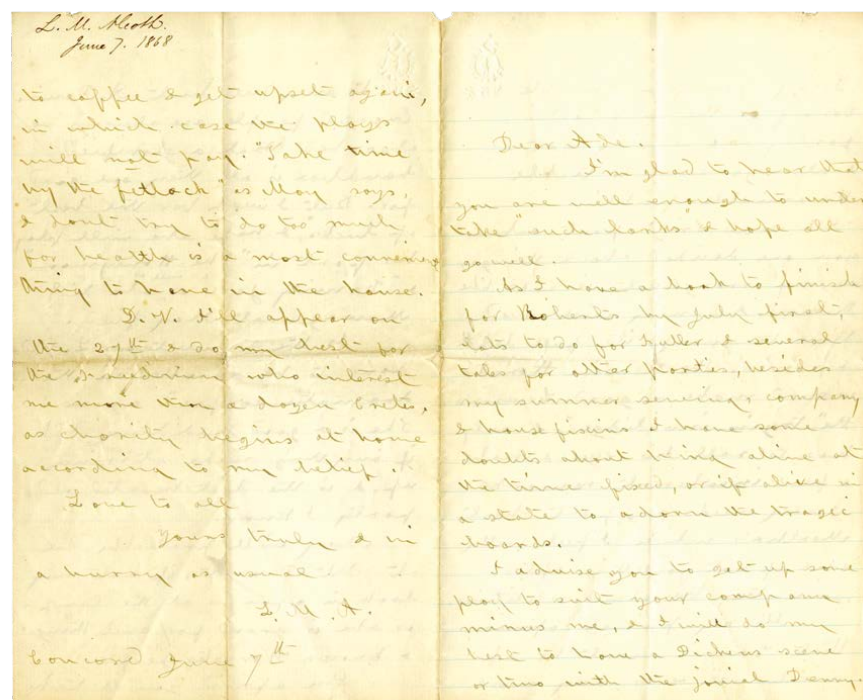 L. M. Alcott.
June 7. 1868
to caffee & get upset again,
in which case the plays
will not pay. "Take time
by the fetlock" as May says,
& dont try to do too much
for health is a most convenient
thing to have in the house.
D. V. I'll appear on
the 27th & do my best for
the Freedmen who interest
me more than a dozen Cretes,
as charity begins at home
according to my belief.
Love to all
yours truly & in
a hurry as usual
L. M. A.
Concord June 7th
Dear Ade.
I'm glad to hear that
you are well enough to under
take "such larks" & hope all
go well.
As I have a book to finish
for Roberts by July first,
lots to do for Fuller & several
tales for other parties, besides
my summer sewing, company
& house fixins I have some
doubts about being alive at
the time fixed, or if alive in
a state to adorn the tragic
boards.
I advise you to get up some
play to suit your company
minus me, & I will do my
best to have a Dickens scene
or two with the jovial Denny.